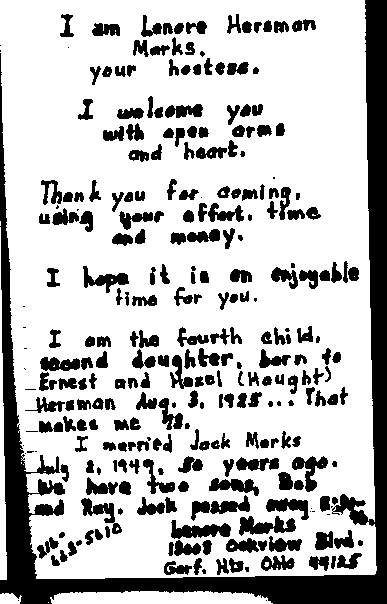 I am Lenore Hersman
Marks,
your hostess.
I welcome you
with open arms
and heart.
Thank you for coming,
using your effort, time
and money.
I hope it is an enjoyable
time for you.
I am the fourth child,
second daughter, born to
Ernest and Hazel (Haught)
Hersman Aug. 3, 1925... That
makes me
I married Jack Marks
July 2, 1949, 50 years ago.
We have two sons, Bob
and Ray. Jack passed away
Lenore Marks
Oakview Blvd.
Garf. Hts. Ohio 44125